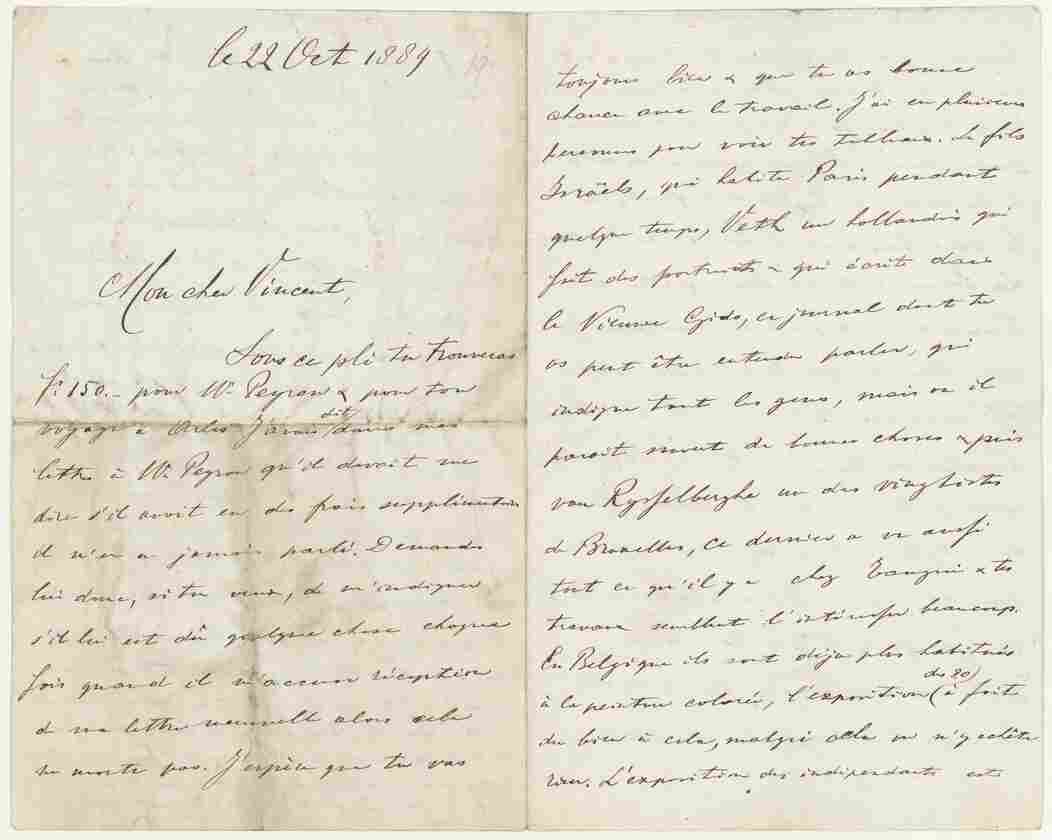 le 22 Oct 1889
Mon cher Vincent,
Sous ce pli tu trouveras
fr. 150.- pour Mr Peyron & pour ton
voyage à Arles J'avais dit dans mes
lettre à Mr Peyron qu'il devait me
dire s'il avait eu des frais supplémentaires
il n'en a jamais parlé. Demande
lui donc, si tu veux, de m'indiquer
s'il lui est dû quelque chose chaque
fois quand il m'accuse réception
de ma lettre mensuelle alors cela
ne monte pas. J'espère que tu vas
toujours bien & que tu as bonne
chance avec le travail. J'ai eu plusieurs
personnes pour voir tes tableaux. Le fils
Israëls, qui habite Paris pendant
quelque temps, Veth un hollandais qui
fait des portraits & qui écrit dans
le Nieuwe Gids, ce journal dont tu
as peut être entendu parler, qui
indigne tout les gens, mais où il
parait souvent de bonnes choses & puis
van Rysselberghe un des vingtistes
de Bruxelles, ce dernier a vu aussi
tout ce qu'il y a chez Tanguy & tes
travaux semblent l'intéresser beaucoup.
En Belgique ils sont déja plus habitués
à la peinture colorée, l'exposition (des 20) a fait
du bien à cela, malgré cela on n'y achète
rien. L'exposition des indépendants est